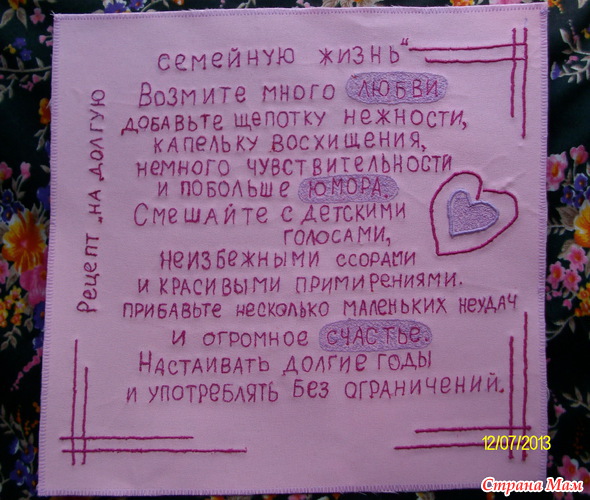 Рецепт „на долгую
семейную жизнь“
Возмите много любви
добавьте щепотку нежности,
капельку восхищения,
немного чувствительности
и побольше юмора.
Смешайте с детскими
голосами,
неизбежными ссорами
и красивыми примирениями.
прибавьте несколько маленьких неудач
и огромное счастье.
Настаивать долгие годы
и употреблять без ограничений.
12/07/2013
Страна Мам